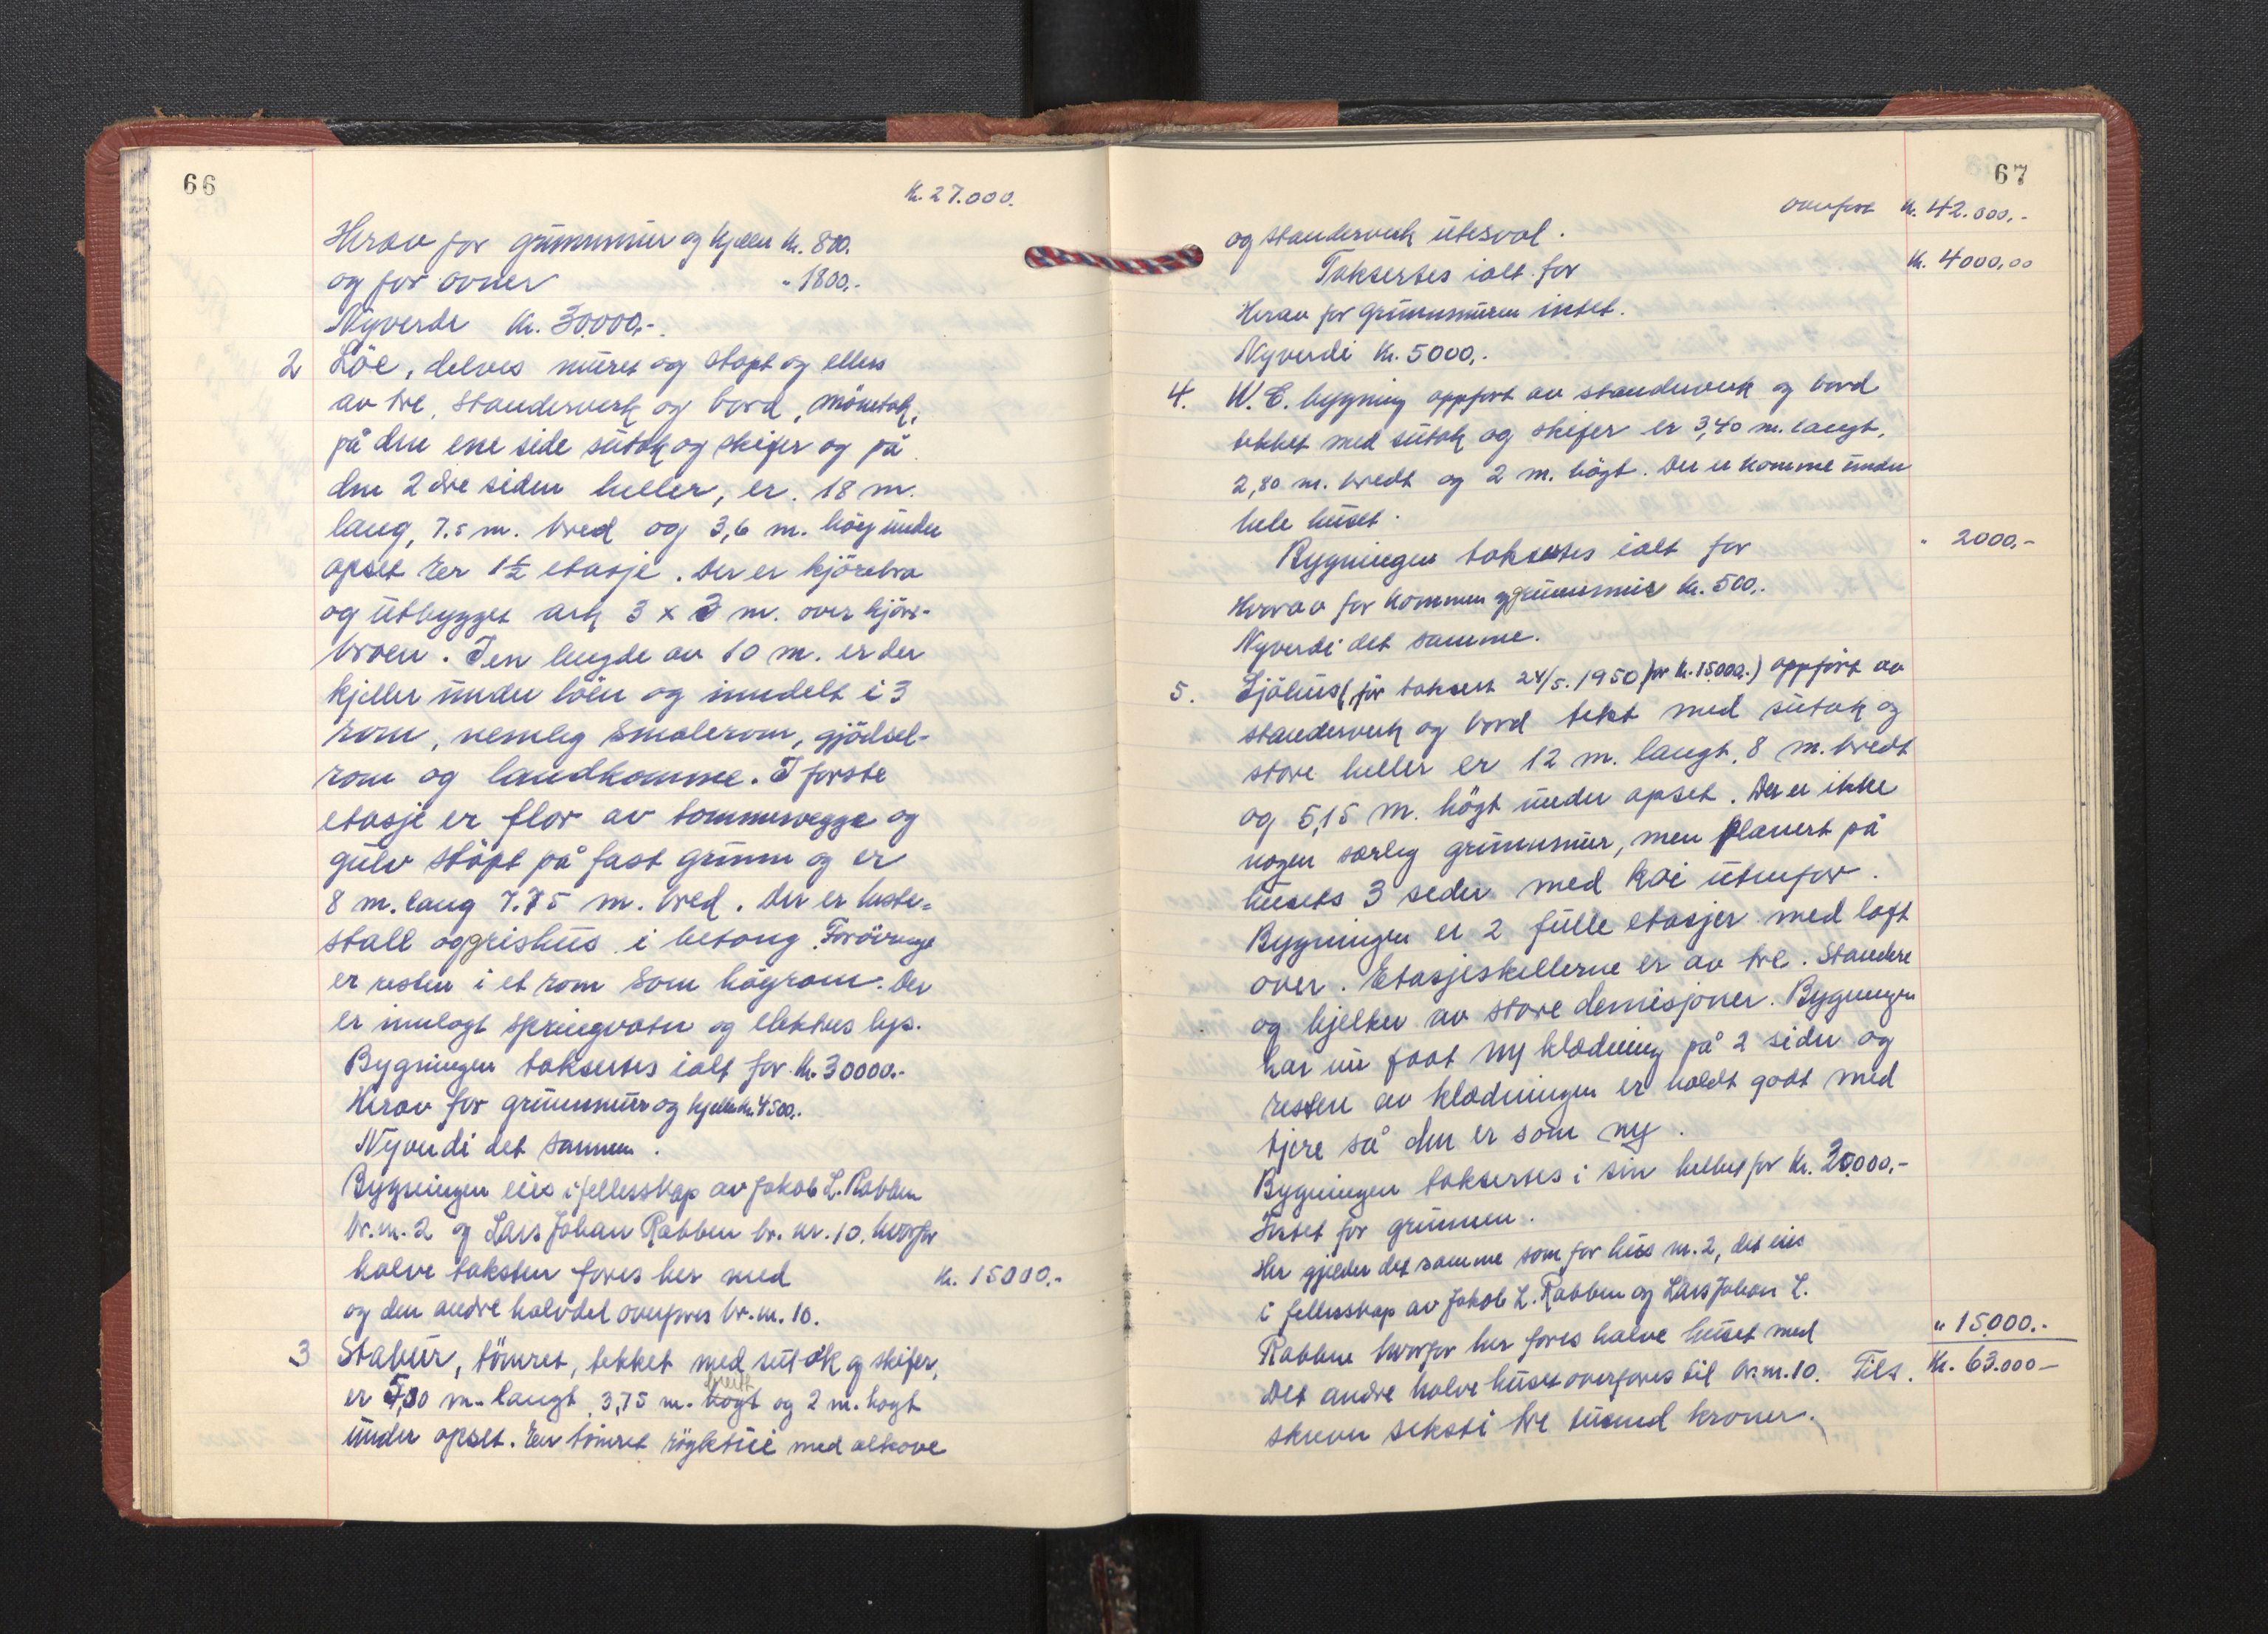 66
Kr. 27.000.
Herav for grunnmur og kjeller Kr. 800.
og for ovner " 1800.-
Nyverdi Kr. 30000,-.
2 Löe, delves muret og støpt og ellers
av tre, standerverk og bord, mönetak,
på den ene side sutak og skifer og på
den 2dre siden heller, er 18 m.
lang, 7.5 m. bred og 3,6 m. höy under
opset. Er 1½ etasje. Der er kjörebro
og utbygget ark 3 x 3 m. over kjöre-
broen. I en lengde av 10 m. er der
kjeller under löen og inndelt i 3
rom, nemlig smalerom, gjödsel-
rom og landkomme. I forste
etasje er flor av tommervegge og
gulv stöpt på fast grunn og er
8 m. lang 7.75 m. bred. Der er heste-
stall og grishus i betong. Forövrige
er resten i et rom som höyrom. Der
er innlagt springvatn og elektris lys.
Bygningen takseres ialt for Kr. 30000.-
Herav for grunnmur og kjeller Kr. 4500,.
Nyverdi det samme.
Bygningen eies i fellesskap av Jakob L. Rabben
br. nr. 2 og Lars Johan Rabben br. nr. 10, hvorfor
halve taksten fores her med Kr. 15000.-
og den andre halvdel overfores br. nr. 10.
3 Stabur, tömret, tekket med sutak og skifer,
er 5,30 m. langt, 3,75 m. breitt og 2 m. hogt
under opset. En tömret röykstue med alkove
67
overfört Kr. 42.000.-
og standerverk utesval.
Takseres ialt for Kr. 4000,00
Herav for grunnmuren intet.
Nyverdi Kr. 5000,.
4. W. C. bygning oppfort av standerverk og bord
tekket med sutak og skifer er 3,40 m. langt,
2,80 m. bredt og 2 m. högt. Der er komme under
hele huset.
Bygningen takseres ialt for " 2000.-
Herav for kommen og grunnmur Kr. 500,.
Nyverdi det samme.
5. Sjöhus (för taksert 24/5. 1950 for Kr. 15000.) oppfört av
standerverk og bord tekt med sutak og
store heller er 12 m. langt, 8 m. bredt
og 5,15 m. högt under opset. Der er ikke
nogen særlig grunnmur, men planert på
husets 3 sider med kai utenfor.
Bygningen er 2 fulle etasjer med loft
over. Etasjeskillerne er av tre. Standere
og bjelker av store demisjoner. Bygningen
har nu faat ny klædning på 2 sider og
resten av klædningen er holdt godt med
tjere så den er som ny.
Bygningen takseres i sin helhet for Kr. 30000,-
Intet for grunnen.
Her gjelder det samme som for hus nr. 2, det eies
i fellesskap av Jakob L. Rabben og Lars Johan L.
Rabben hvorfor her fores halve huset med " 15.000.-
Det andre halve huset overfores til br. nr. 10. Tils. Kr. 63.000-
skriver seksti tre tusend kroner.